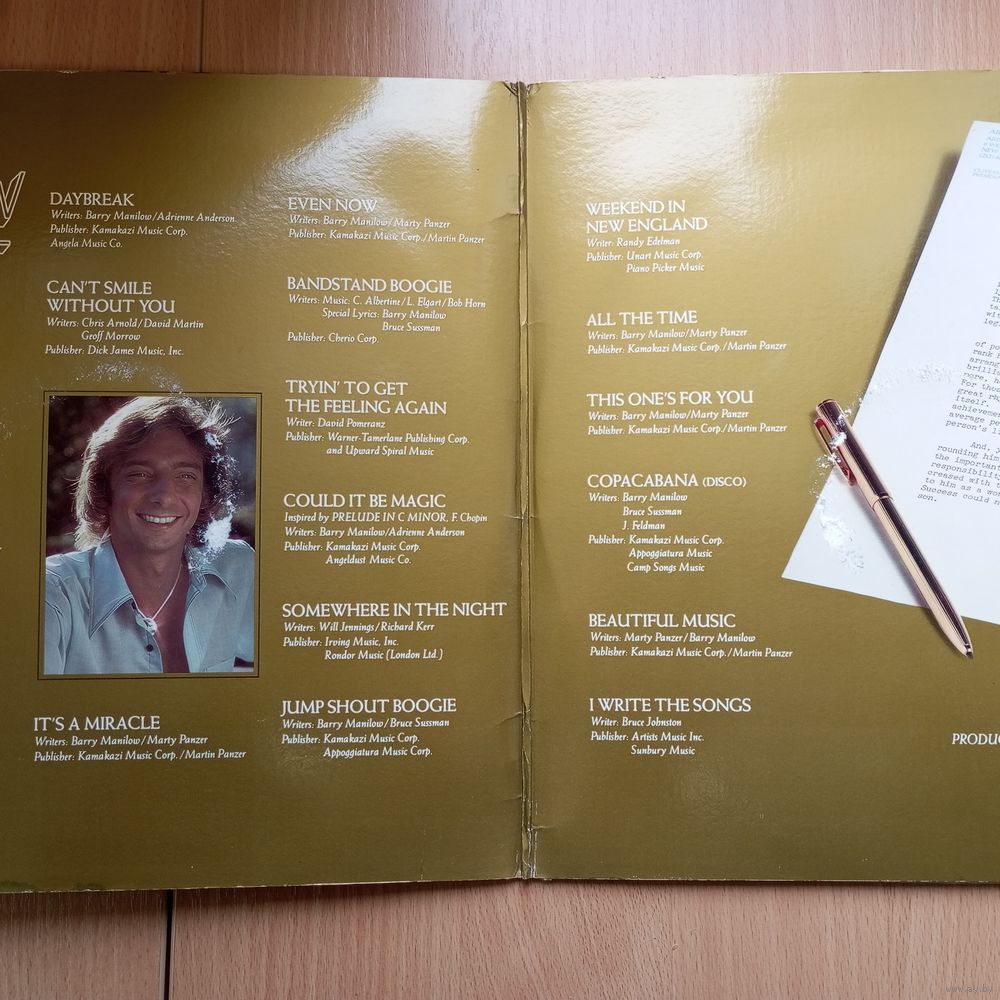 DAYBREAK
Writers: Barry Manilow/Adrienne Anderson
Publisher: Kamakazi Music Corp.
Angela Music Co.
CAN'T SMILE
WITHOUT YOU
Writers: Chris Arnold/David Martin
Geoff Morrow
Publisher: Dick James Music, Inc.
IT'S A MIRACLE
Writers: Barry Manilow/Marty Panzer
Publisher: Kamakazi Music Corp./Martin Panzer
EVEN NOW
Writers: Barry Manilow/Marty Panzer
Publisher: Kamakazi Music Corp./Martin Panzer
BANDSTAND BOOGIE
Writers: Music: C. Albertine/L. Elgart/Bob Horn
Special Lyrics: Barry Manilow
Bruce Sussman
Publisher: Cherio Corp.
TRYIN' TO GET
THE FEELING AGAIN
Writer: David Pomeranz
Publisher: Warner-Tamerlane Publishing Corp.
and Upward Spiral Music
COULD IT BE MAGIC
Inspired by PRELUDE IN C MINOR, F. Chopin
Writers: Barry Manilow/Adrienne Anderson
Publisher: Kamakazi Music Corp.
Angeldust Music Co.
SOMEWHERE IN THE NIGHT
Writers: Will Jennings/Richard Kerr
Publisher: Irving Music, Inc.
Rondor Music (London Ltd.)
JUMP SHOUT BOOGIE
Writers: Barry Manilow/Bruce Sussman
Publisher: Kamakazi Music Corp.
Appoggiatura Music Corp.
WEEKEND IN
NEW ENGLAND
Writer: Randy Edelman
Publisher: Unart Music Corp.
Piano Picker Music
ALL THE TIME
Writers: Barry Manilow/Marty Panzer
Publisher: Kamakazi Music Corp./Martin Panzer
THIS ONE'S FOR YOU
Writers: Barry Manilow/Marty Panzer
Publisher: Kamakazi Music Corp./Martin Panzer
COPACABANA (DISCO)
Writers: Barry Manilow
Bruce Sussman
J. Feldman
Publisher: Kamakazi Music Corp.
Appoggiatura Music
Camp Songs Music
BEAUTIFUL MUSIC
Writers: Marty Panzer/Barry Manilow
Publisher: Kamakazi Music Corp./Martin Panzer
I WRITE THE SONGS
Writer: Bruce Johnston
Publisher: Artists Music Inc.
Sunbury Music
of po
rank
arrang
brillia
more,
For thos
great rhy
itself.
achievemen
average pe
person's li
And, y
rounding him
the importan
responsibility
creased with t
to him as a wo
Success could n
son.
PRODUC
www.ay.by